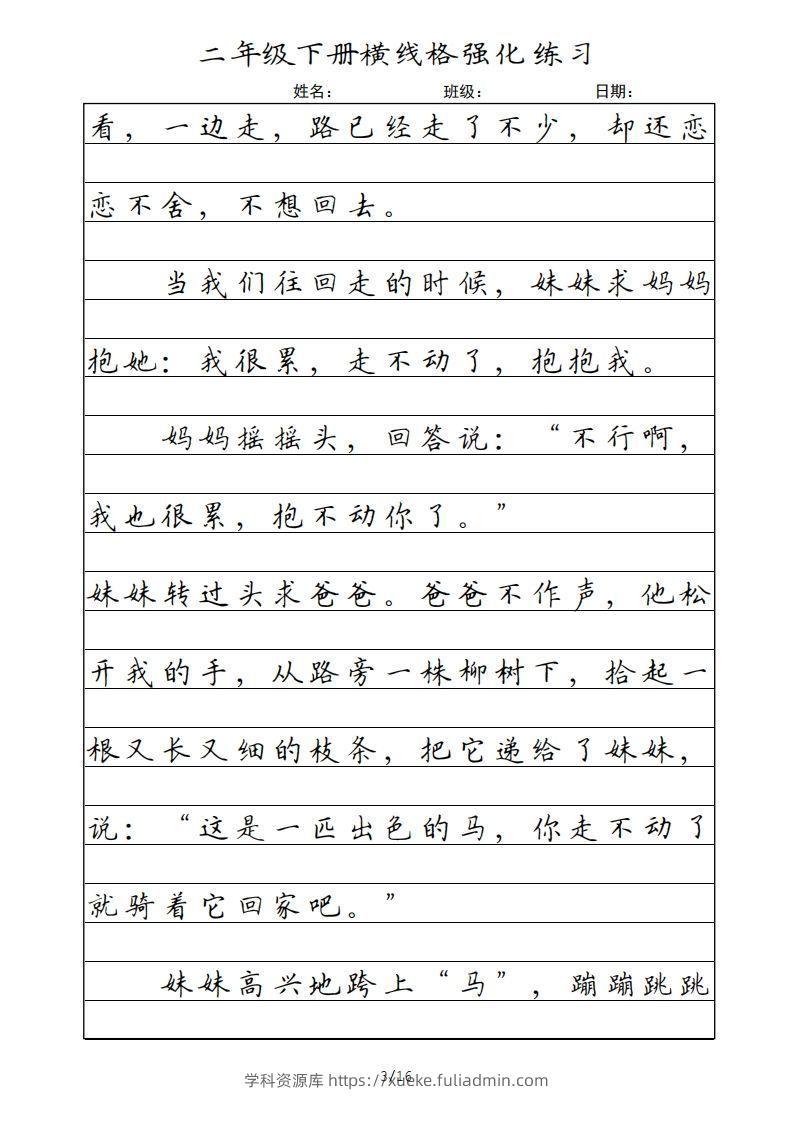 二年级下册横线格强化练习
姓名： 班级： 日期：
看，一边走，路已经走了不少，却还恋
恋不舍，不想回去。
当我们往回走的时候，妹妹求妈妈
抱她：我很累，走不动了，抱抱我。
妈妈摇摇头，回答说：“不行啊，
我也很累，抱不动你了。”
妹妹转过头求爸爸。爸爸不作声，他松
开我的手，从路旁一株柳树下，拾起一
根又长又细的枝条，把它递给了妹妹，
说：“这是一匹出色的马，你走不动了
就骑着它回家吧。”
妹妹高兴地跨上“马”，蹦蹦跳跳
3/16
学科资源库 https://xueke.fuliadmin.com